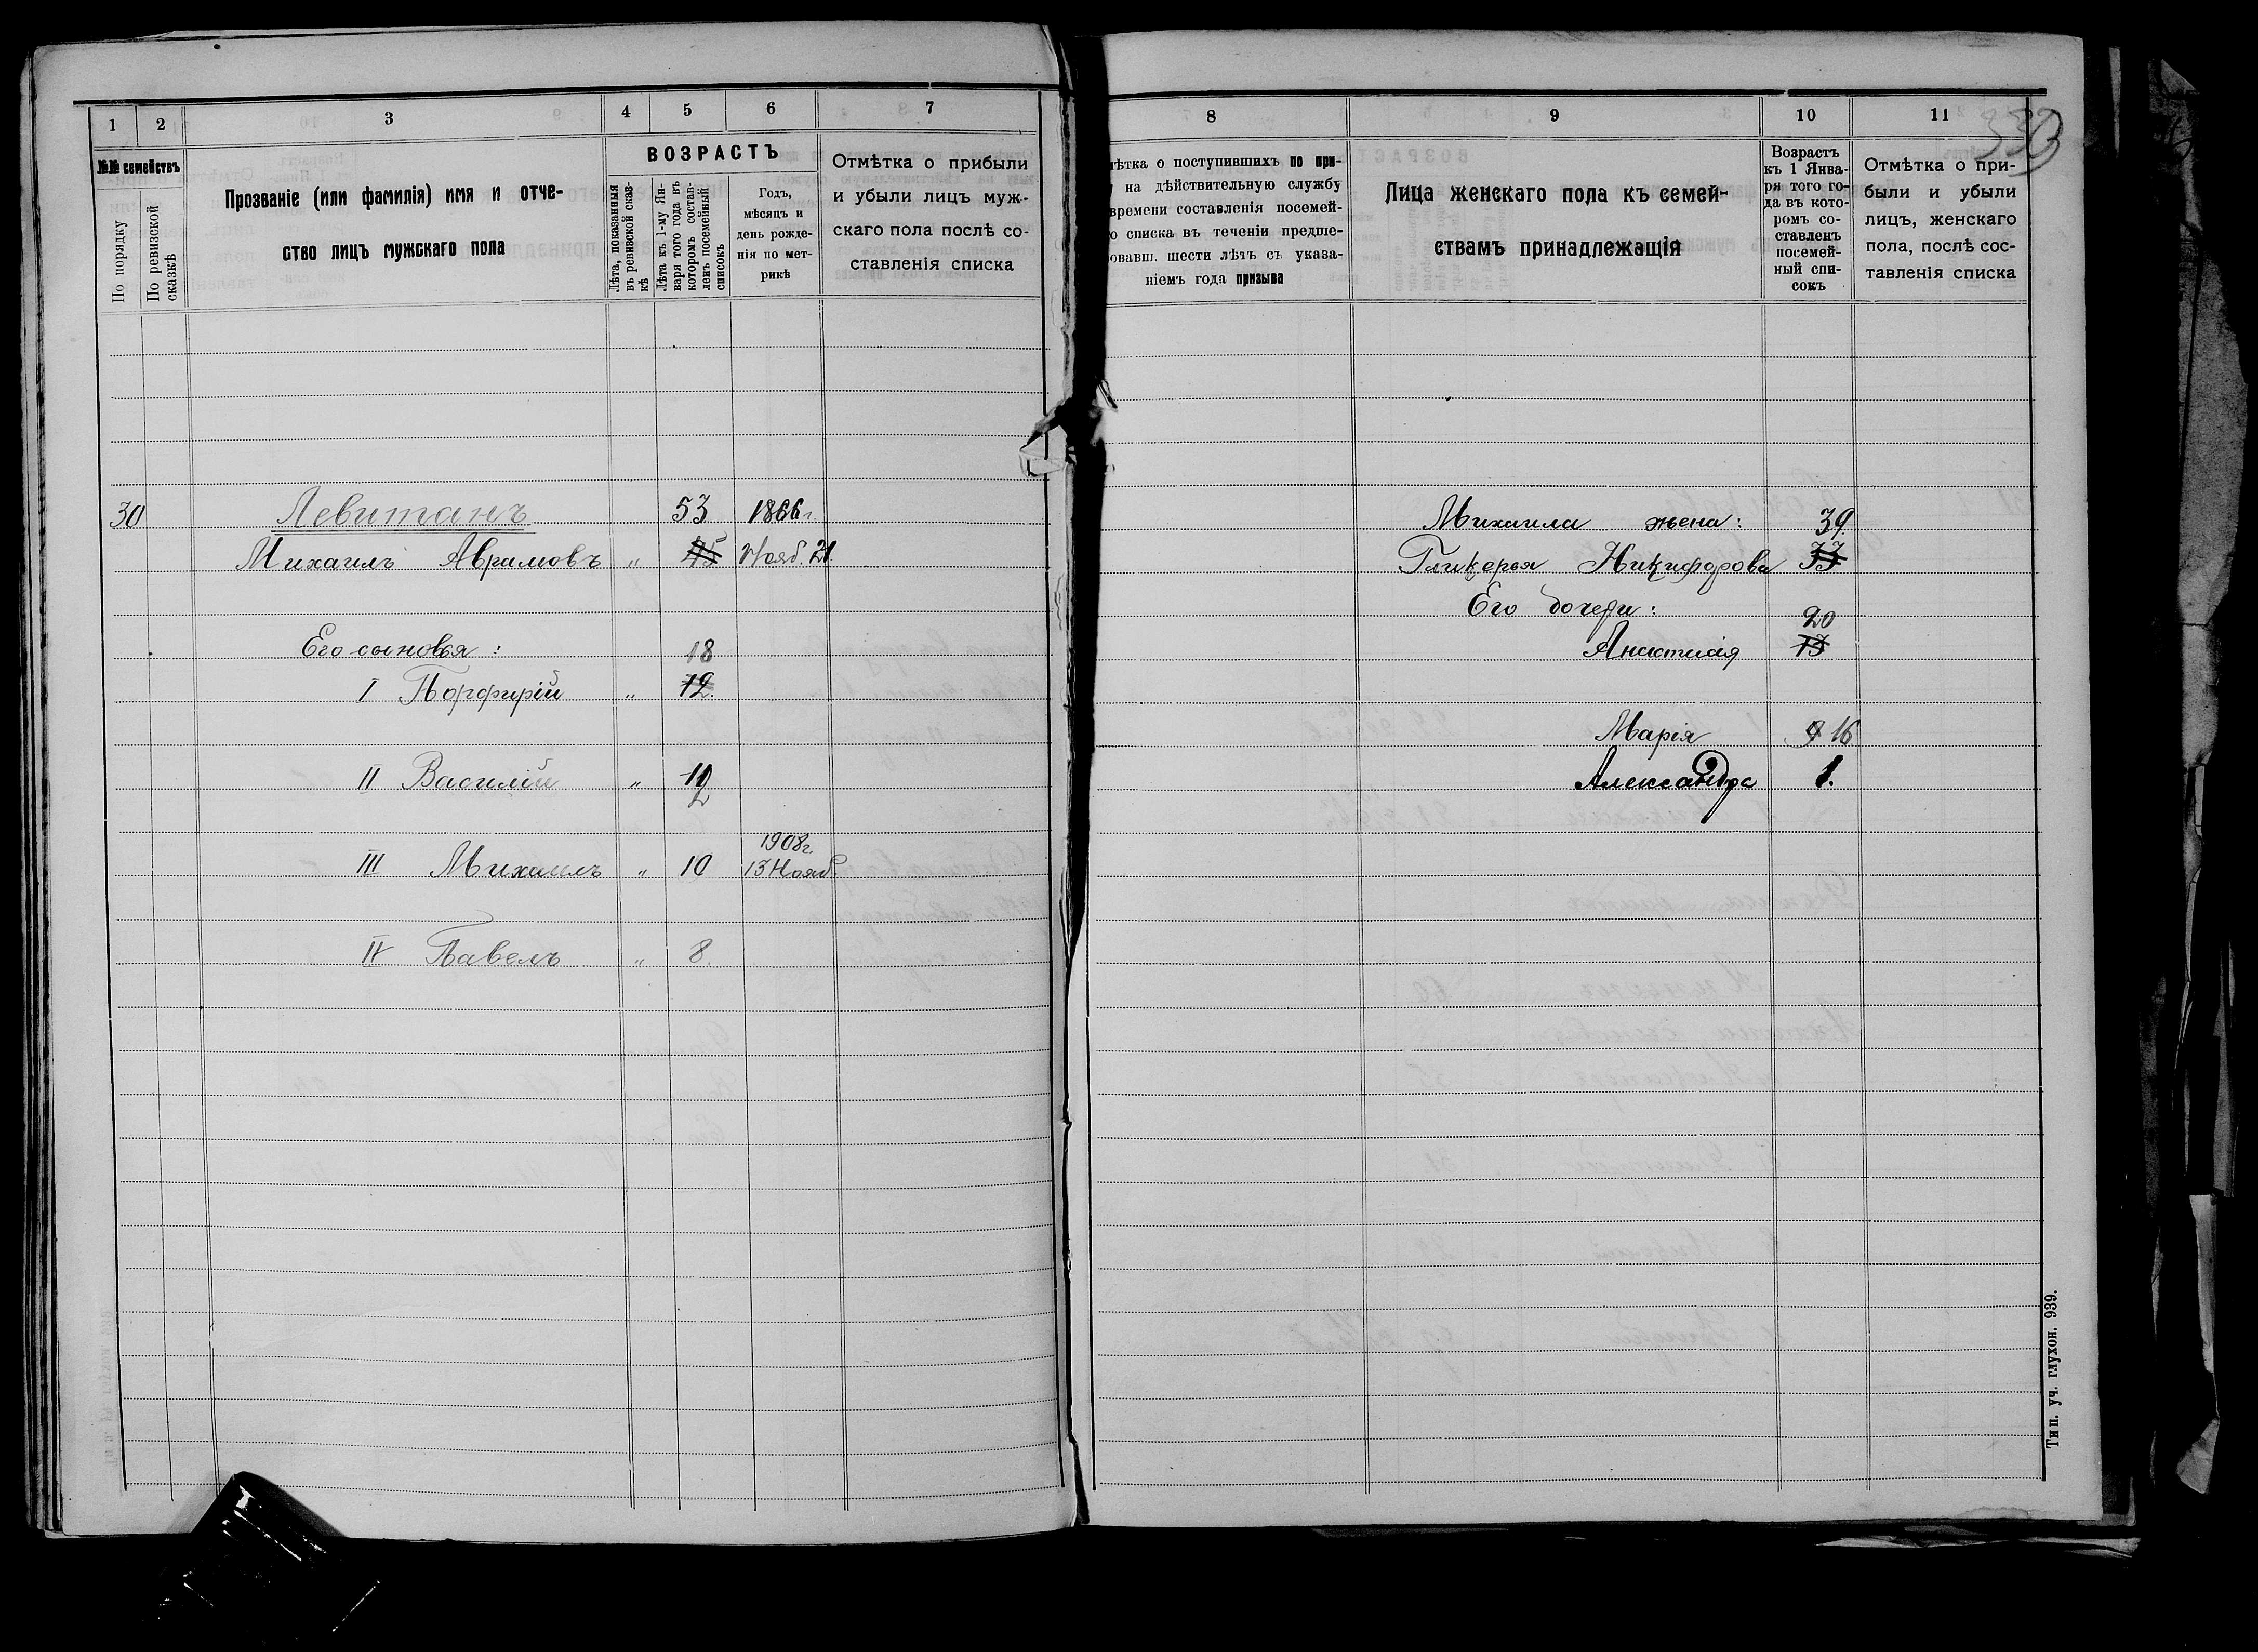 1 2 3 4 5 6 7
№№ семействъ
По порядку
По ревизской сказкѣ
Прозваніе (или фамилія) имя и отче-
ство лицъ мужскаго пола
ВОЗРАСТЪ
Лѣта, показанныя
въ ревизской сказ-
кѣ
Лѣта къ 1-му Ян-
варя того года въ
которомъ состав-
ленъ посемейный
списокъ
Годъ,
мѣсяцъ и
день рожде-
нія по мет-
рикѣ
Отмѣтка о прибыли
и убыли лицъ муж-
скаго пола послѣ со-
ставленія списка
30 Левитанъ 53 1866 г.
Михаилъ Аврамовъ " 45 Нояб. 21
Его сыновья : 18
I Порфирій " 12.
II Василій " 12
III Михаилъ " 10 1908 г.
13 Нояб.
IV Павелъ " 8.
8 9 10 11
333
мѣтка о поступившихъ по при-
на дѣйствительную службу
времени составленія посемей-
о списка въ теченіи предше-
овавш. шести лѣтъ съ указа-
ніемъ года призыва
Лица женскаго пола къ семей-
ствамъ принадлежащія
Возрастъ
къ 1 Янва-
ря того го-
да въ кото-
ромъ со-
ставленъ
посемей-
ный спи-
сокъ
Отмѣтка о при-
были и убыли
лицъ, женскаго
пола, послѣ сос-
тавленія списка
Михаила жена : 39.
Гликерья Никифорова 33
Его дочери : 20
Анастасія 13
Марія 9 16
Александра 1.
Тип. уч. глухон. 939.